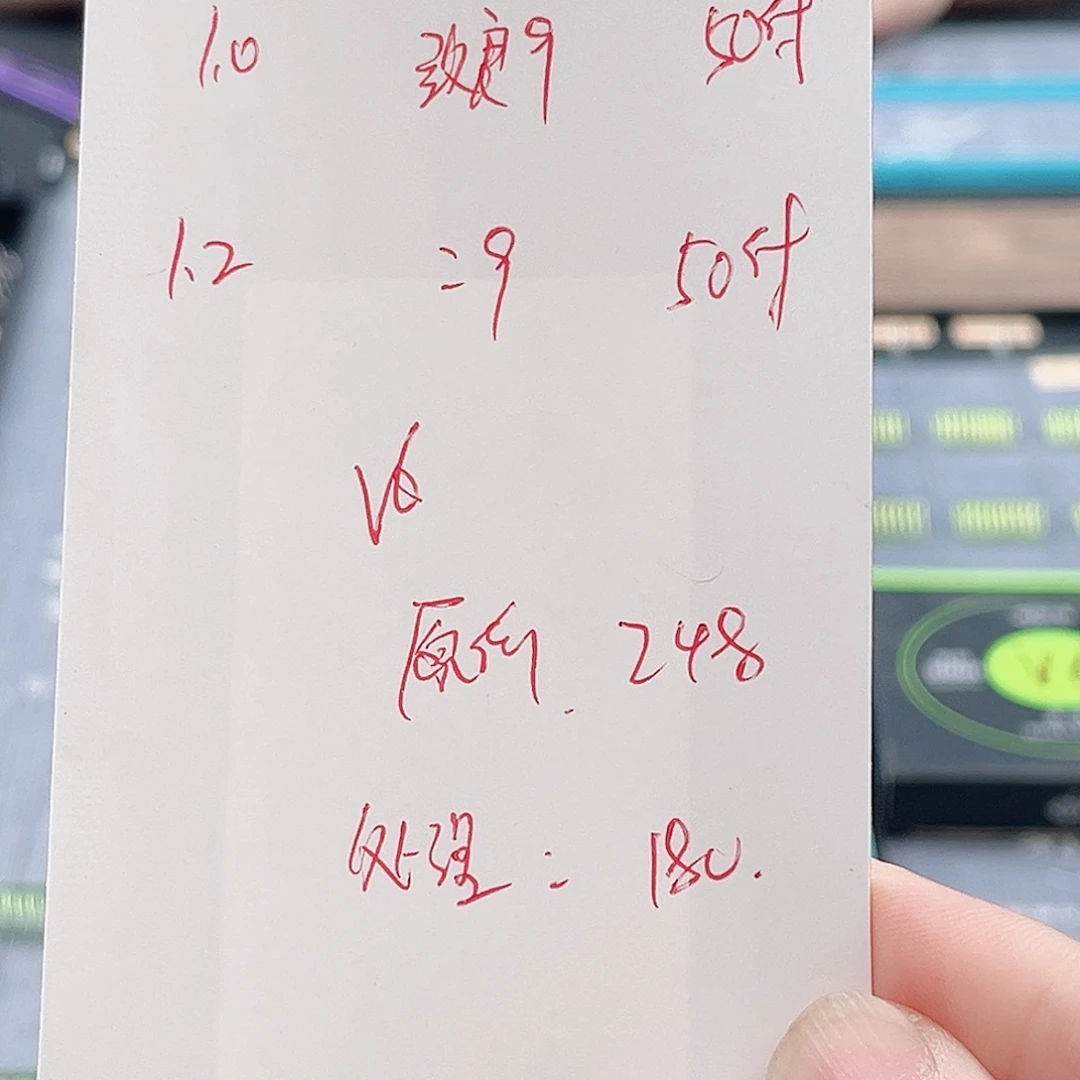 1.0 敦9 50付
1.2 =9 50付
V6
原价. 248
处理: 180.